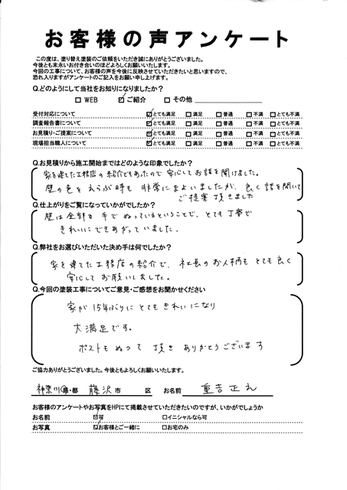 お客様の声アンケート
この度は、塗り替え塗装のご依頼をいただき誠にありがとうございました。
今後とも末永いお付き合いのほどよろしくお願いいたします。
今回の工事について、お客様の声を今後に反映させていただきたいと思いますので、
恐れ入りますがアンケートのご記入をお願い申し上げます。
Q.どのようにして当社をお知りになりましたか?
□ WEB ☑ ご紹介 □ その他
受付対応について ☑とても満足 □満足 □普通 □不満 □とても不満
調査報告書について ☑とても満足 □満足 □普通 □不満 □とても不満
お見積り・ご提案について ☑とても満足 □満足 □普通 □不満 □とても不満
現場担当職人について ☑とても満足 □満足 □普通 □不満 □とても不満
Q.お見積りから施工開始まではどのような印象でしたか?
家を建てた工務店の紹介でもあったので安心してお話を聞けました。
壁の色をえらぶ時も非常にまよいましたが、良く話を聞いて
ご提案頂きました
Q.仕上がりをご覧になっていかがでしたか?
壁は全部手でぬっているということで、とても丁寧で
きれいにできあがっていました。
Q.弊社をお選びいただいた決め手は何でしたか?
家を建てた工務店の紹介で、社長のお人柄もとても良く
安心してお願いしました。
Q.今回の塗装工事についてご意見・ご感想をお聞かせください
家が15年ぶりにとてもきれいになり
大満足です。
ポストもぬって頂きありがとうございます
ご協力ありがとうございました。今後ともよろしくお願いいたします。
神奈川県・都 藤沢市 区 お名前 重吉正
お客様のアンケートやお写真をHPにて掲載させていただきたいのですが、いかがでしょうか
お名前 ☑可 □イニシャルなら可
お写真 ☑お客様とご一緒に □お宅のみ